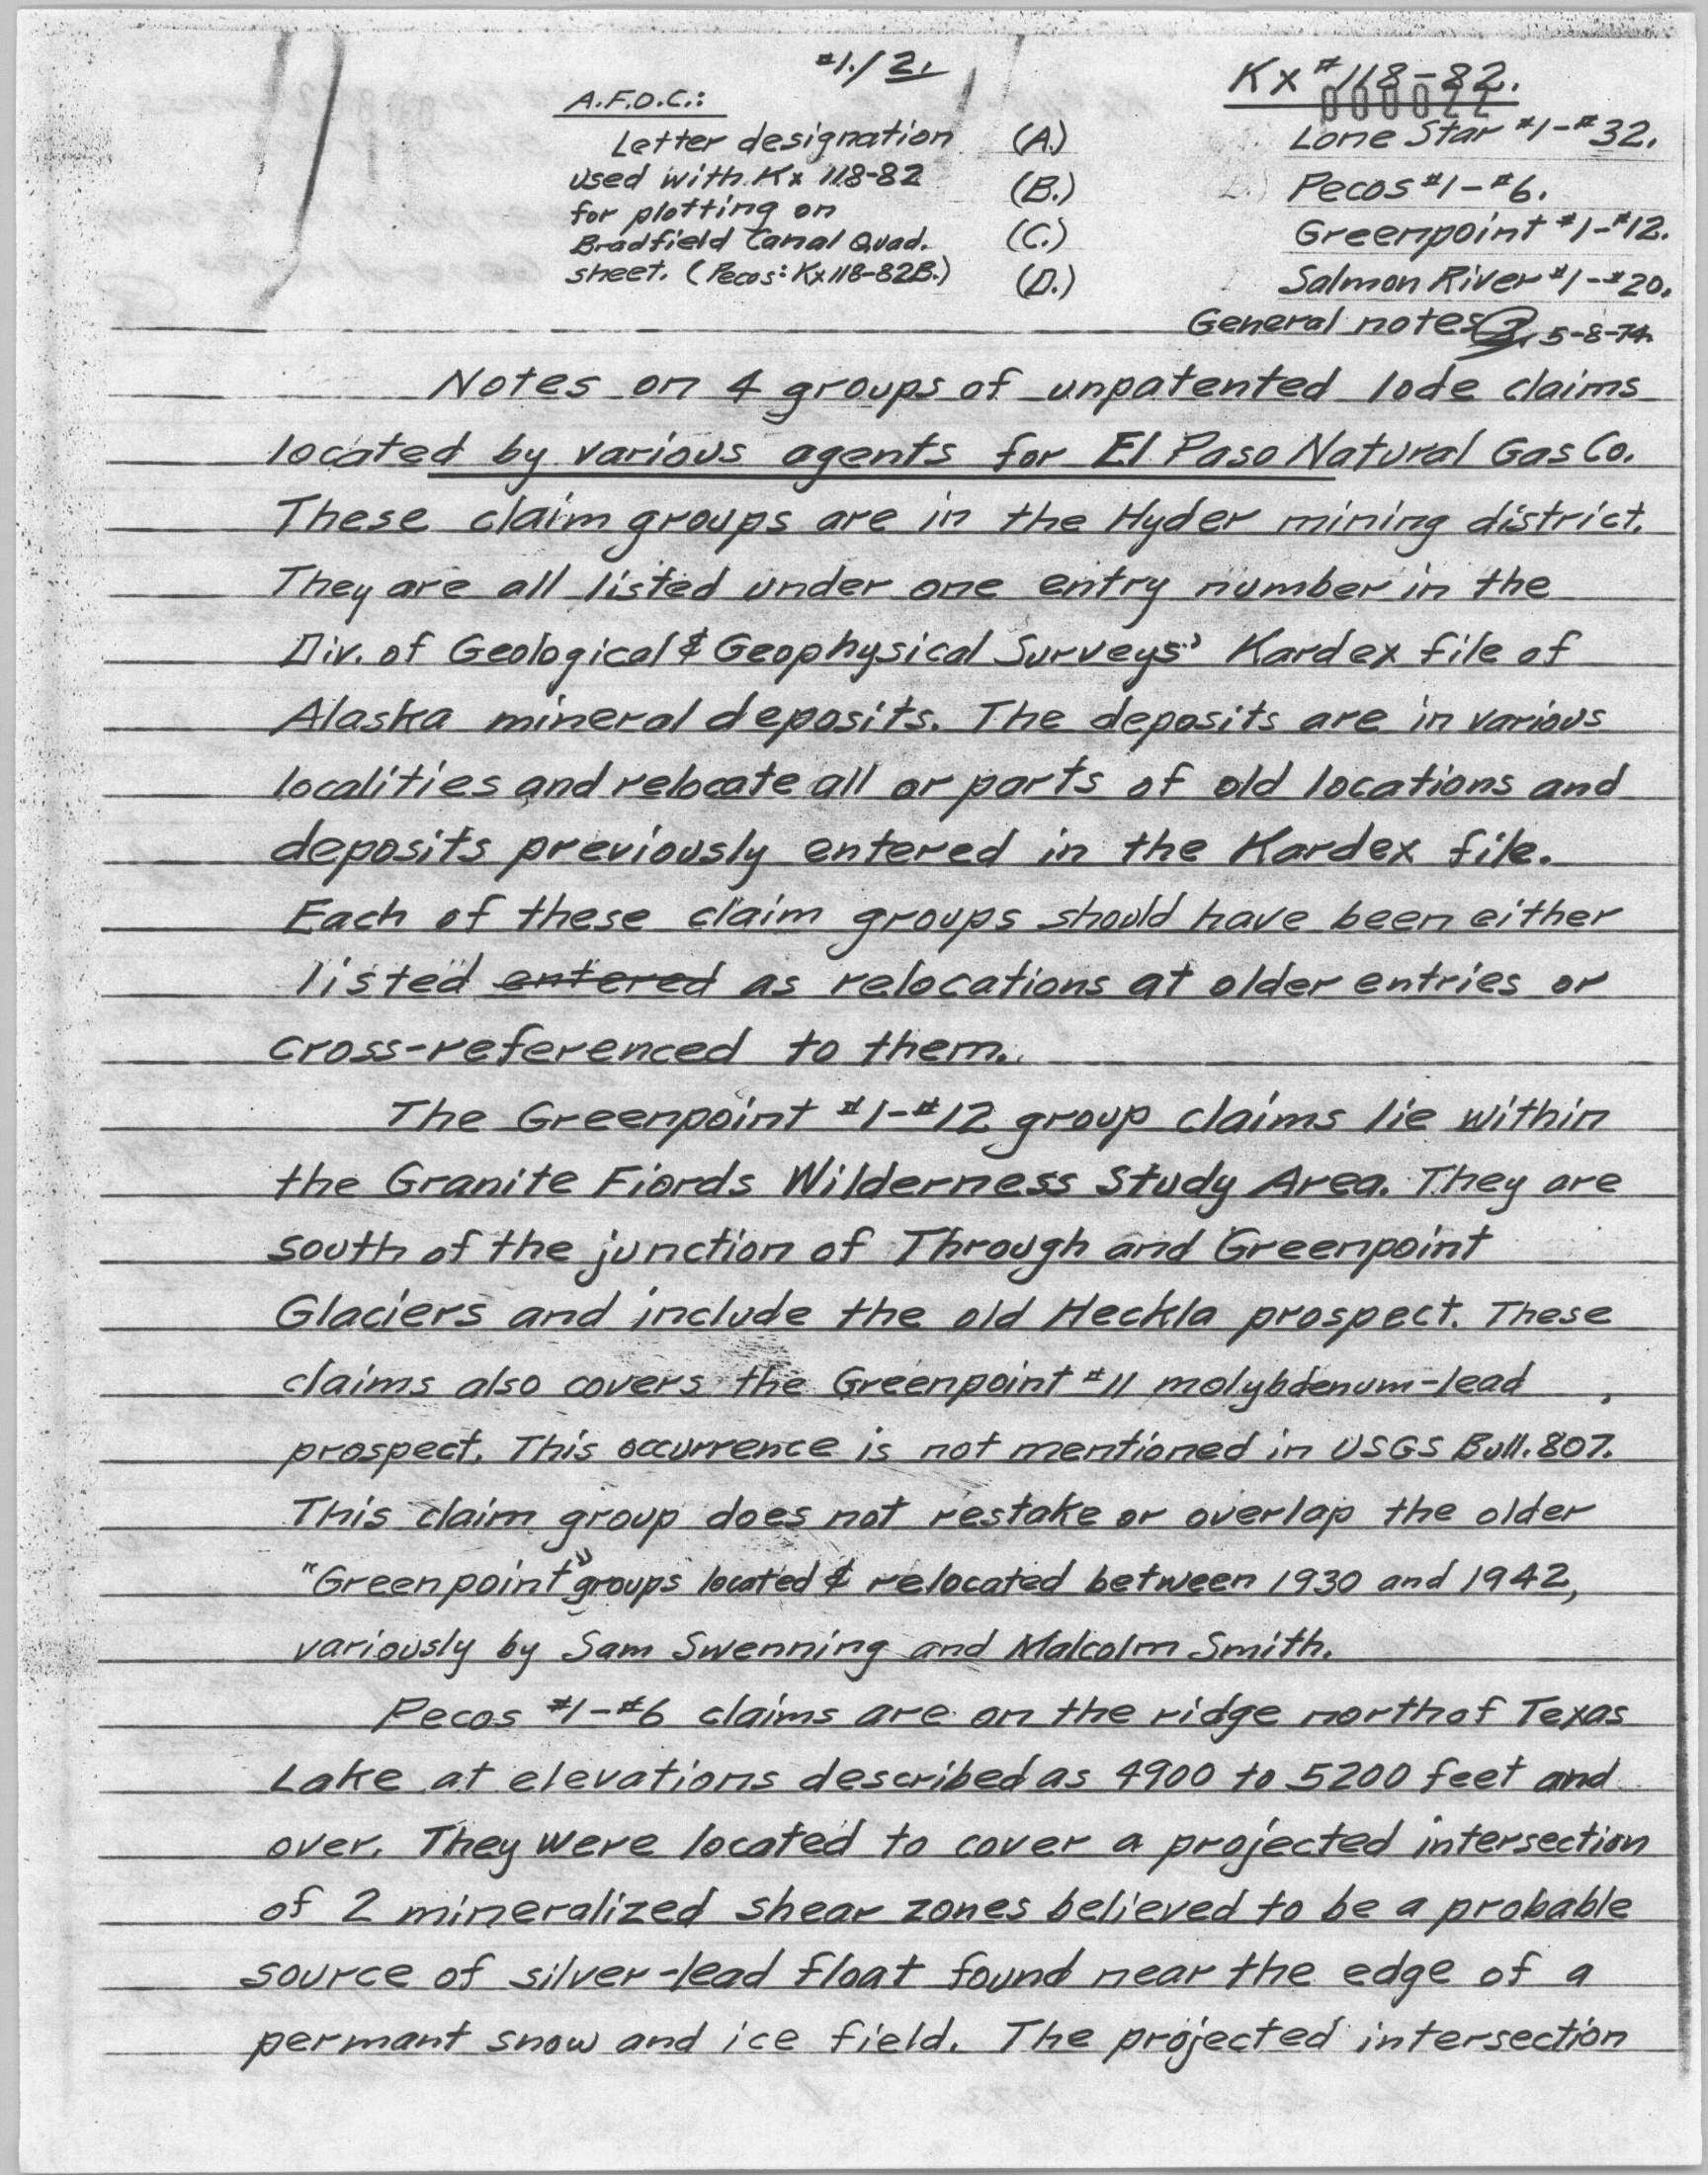 #1./2.
Kx #118-82.
000022
A.F.O.C.:
Letter designation (A.) Lone Star #1-#32.
used with Kx 118-82 (B.) Pecos #1-#6.
for plotting on
Bradfield Canal Quad. (C.) Greenpoint #1-#12.
sheet. (Pecos: Kx118-82B.) (D.) Salmon River #1-#20.
General notes 5-8-74.
Notes on 4 groups of unpatented lode claims
located by various agents for El Paso Natural Gas Co.
These claim groups are in the Hyder mining district.
They are all listed under one entry number in the
Div. of Geological & Geophysical Surveys' Kardex file of
Alaska mineral deposits. The deposits are in various
localities and relocate all or parts of old locations and
deposits previously entered in the Kardex file.
Each of these claim groups should have been either
listed entered as relocations at older entries or
cross-referenced to them.
The Greenpoint #1-#12 group claims lie within
the Granite Fiords Wilderness Study Area. They are
south of the junction of Through and Greenpoint
Glaciers and include the old Heckla prospect. These
claims also covers the Greenpoint #11 molybdenum-lead
prospect. This occurrence is not mentioned in USGS Bull. 807.
This claim group does not restake or overlap the older
"Greenpoint" groups located & relocated between 1930 and 1942,
variously by Sam Swenning and Malcolm Smith.
Pecos #1-#6 claims are on the ridge north of Texas
Lake at elevations described as 4900 to 5200 feet and
over. They were located to cover a projected intersection
of 2 mineralized shear zones believed to be a probable
source of silver-lead float found near the edge of a
permant snow and ice field. The projected intersection